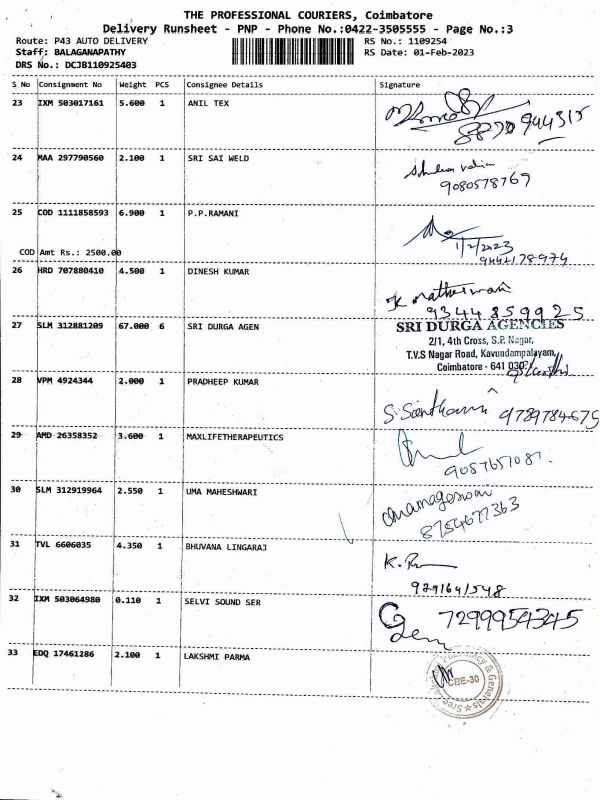 THE PROFESSIONAL COURIERS, Coimbatore
Delivery Runsheet - PNP - Phone No.:0422-3505555 - Page No.:3
Route: P43 AUTO DELIVERY RS No.: 1109254
Staff: BALAGANAPATHY RS Date: 01-Feb-2023
DRS No.: DCJB110925403
S No Consignment No Weight PCS Consignee Details Signature
23 IXM 503017161 5.600 1 ANIL TEX
8870944315
24 MAA 297790560 2.100 1 SRI SAI WELD
9080578769
25 COD 1111858593 6.900 1 P.P.RAMANI
1/2/2023
COD Amt Rs.: 2500.00 9442178974
26 HRD 707880410 4.500 1 DINESH KUMAR
9344859925
27 SLM 312881209 67.000 6 SRI DURGA AGEN SRI DURGA AGENCIES
2/1, 4th Cross, S.P. Nagar,
T.V.S Nagar Road, Kavundampalayam,
Coimbatore - 641 030
28 VPM 4924344 2.000 1 PRADHEEP KUMAR
9789784679
29 AMD 26358352 3.600 1 MAXLIFETHERAPEUTICS
9057651081
30 SLM 312919964 2.550 1 UMA MAHESHWARI
8754677363
31 TVL 6606035 4.350 1 BHUVANA LINGARAJ
9291641548
32 IXM 503064980 0.110 1 SELVI SOUND SER 7299954345
33 EDQ 17461286 2.100 1 LAKSHMI PARMA
CBE-30